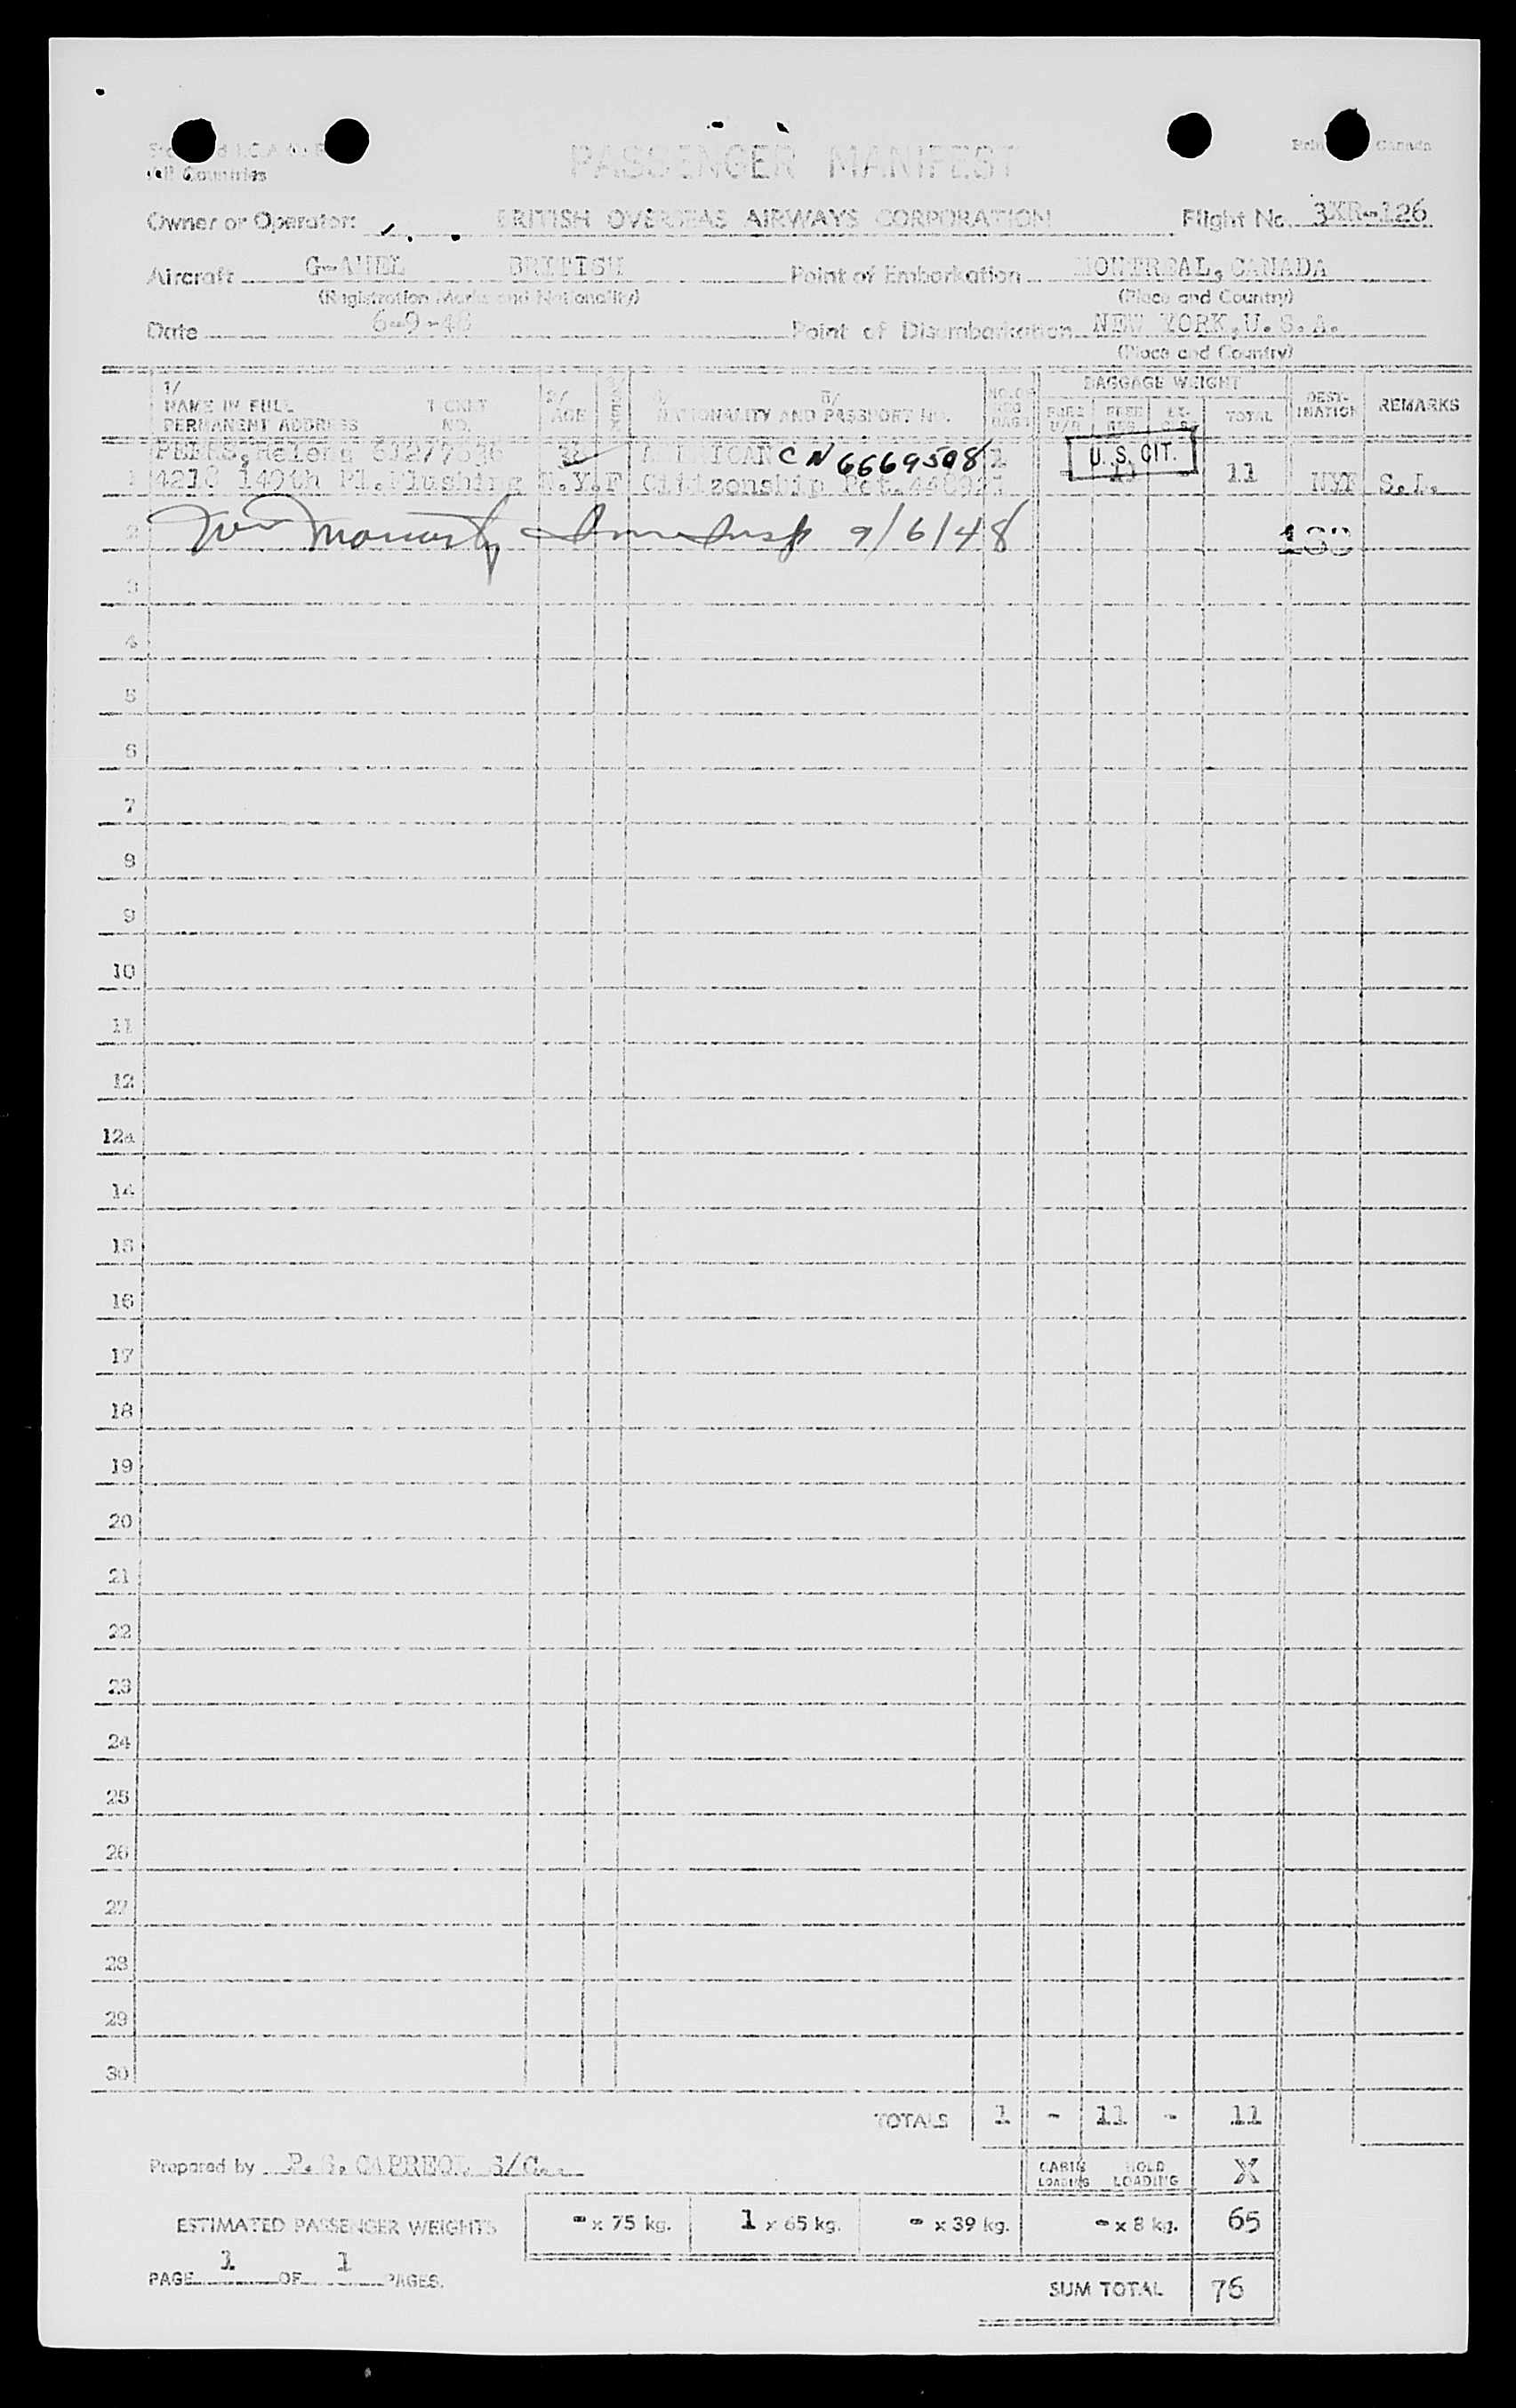 All Countries
Canada
PASSENGER MANIFEST
Owner or Operator: BRITISH OVERSEAS AIRWAYS CORPORATION Flight No. 3XR-126
Aircraft BRITISH Point of Embarkation MONTREAL, CANADA
(Registration Marks and Nationality) (Place and Country)
Date 6-9-48 Point of Disembarkation NEW YORK, U.S.A.
(Place and Country)
BAGGAGE WEIGHT
1/ NAME IN FULL PERMANENT ADDRESS TICKET NO. 2/ AGE SEX NATIONALITY AND PASSPORT No. TOTAL DESTINATION REMARKS
Helena AMERICAN CN 6669508 1 U.S. CIT.
1 149th Pl. Flushing N.Y. F Citizenship 11 NYK
2 9/6/48
3
4
5
6
7
8
9
10
11
12
12a
14
15
16
17
18
19
20
21
22
23
24
25
26
27
28
29
30
TOTALS 1 - 11 - 11
Prepared by CAPREOL
CABIN LOADING HOLD LOADING X
ESTIMATED PASSENGER WEIGHTS - x 75 kg. 1 x 65 kg. - x 39 kg. - x 8 kg. 65
PAGE 1 OF 1 PAGES.
SUM TOTAL 76